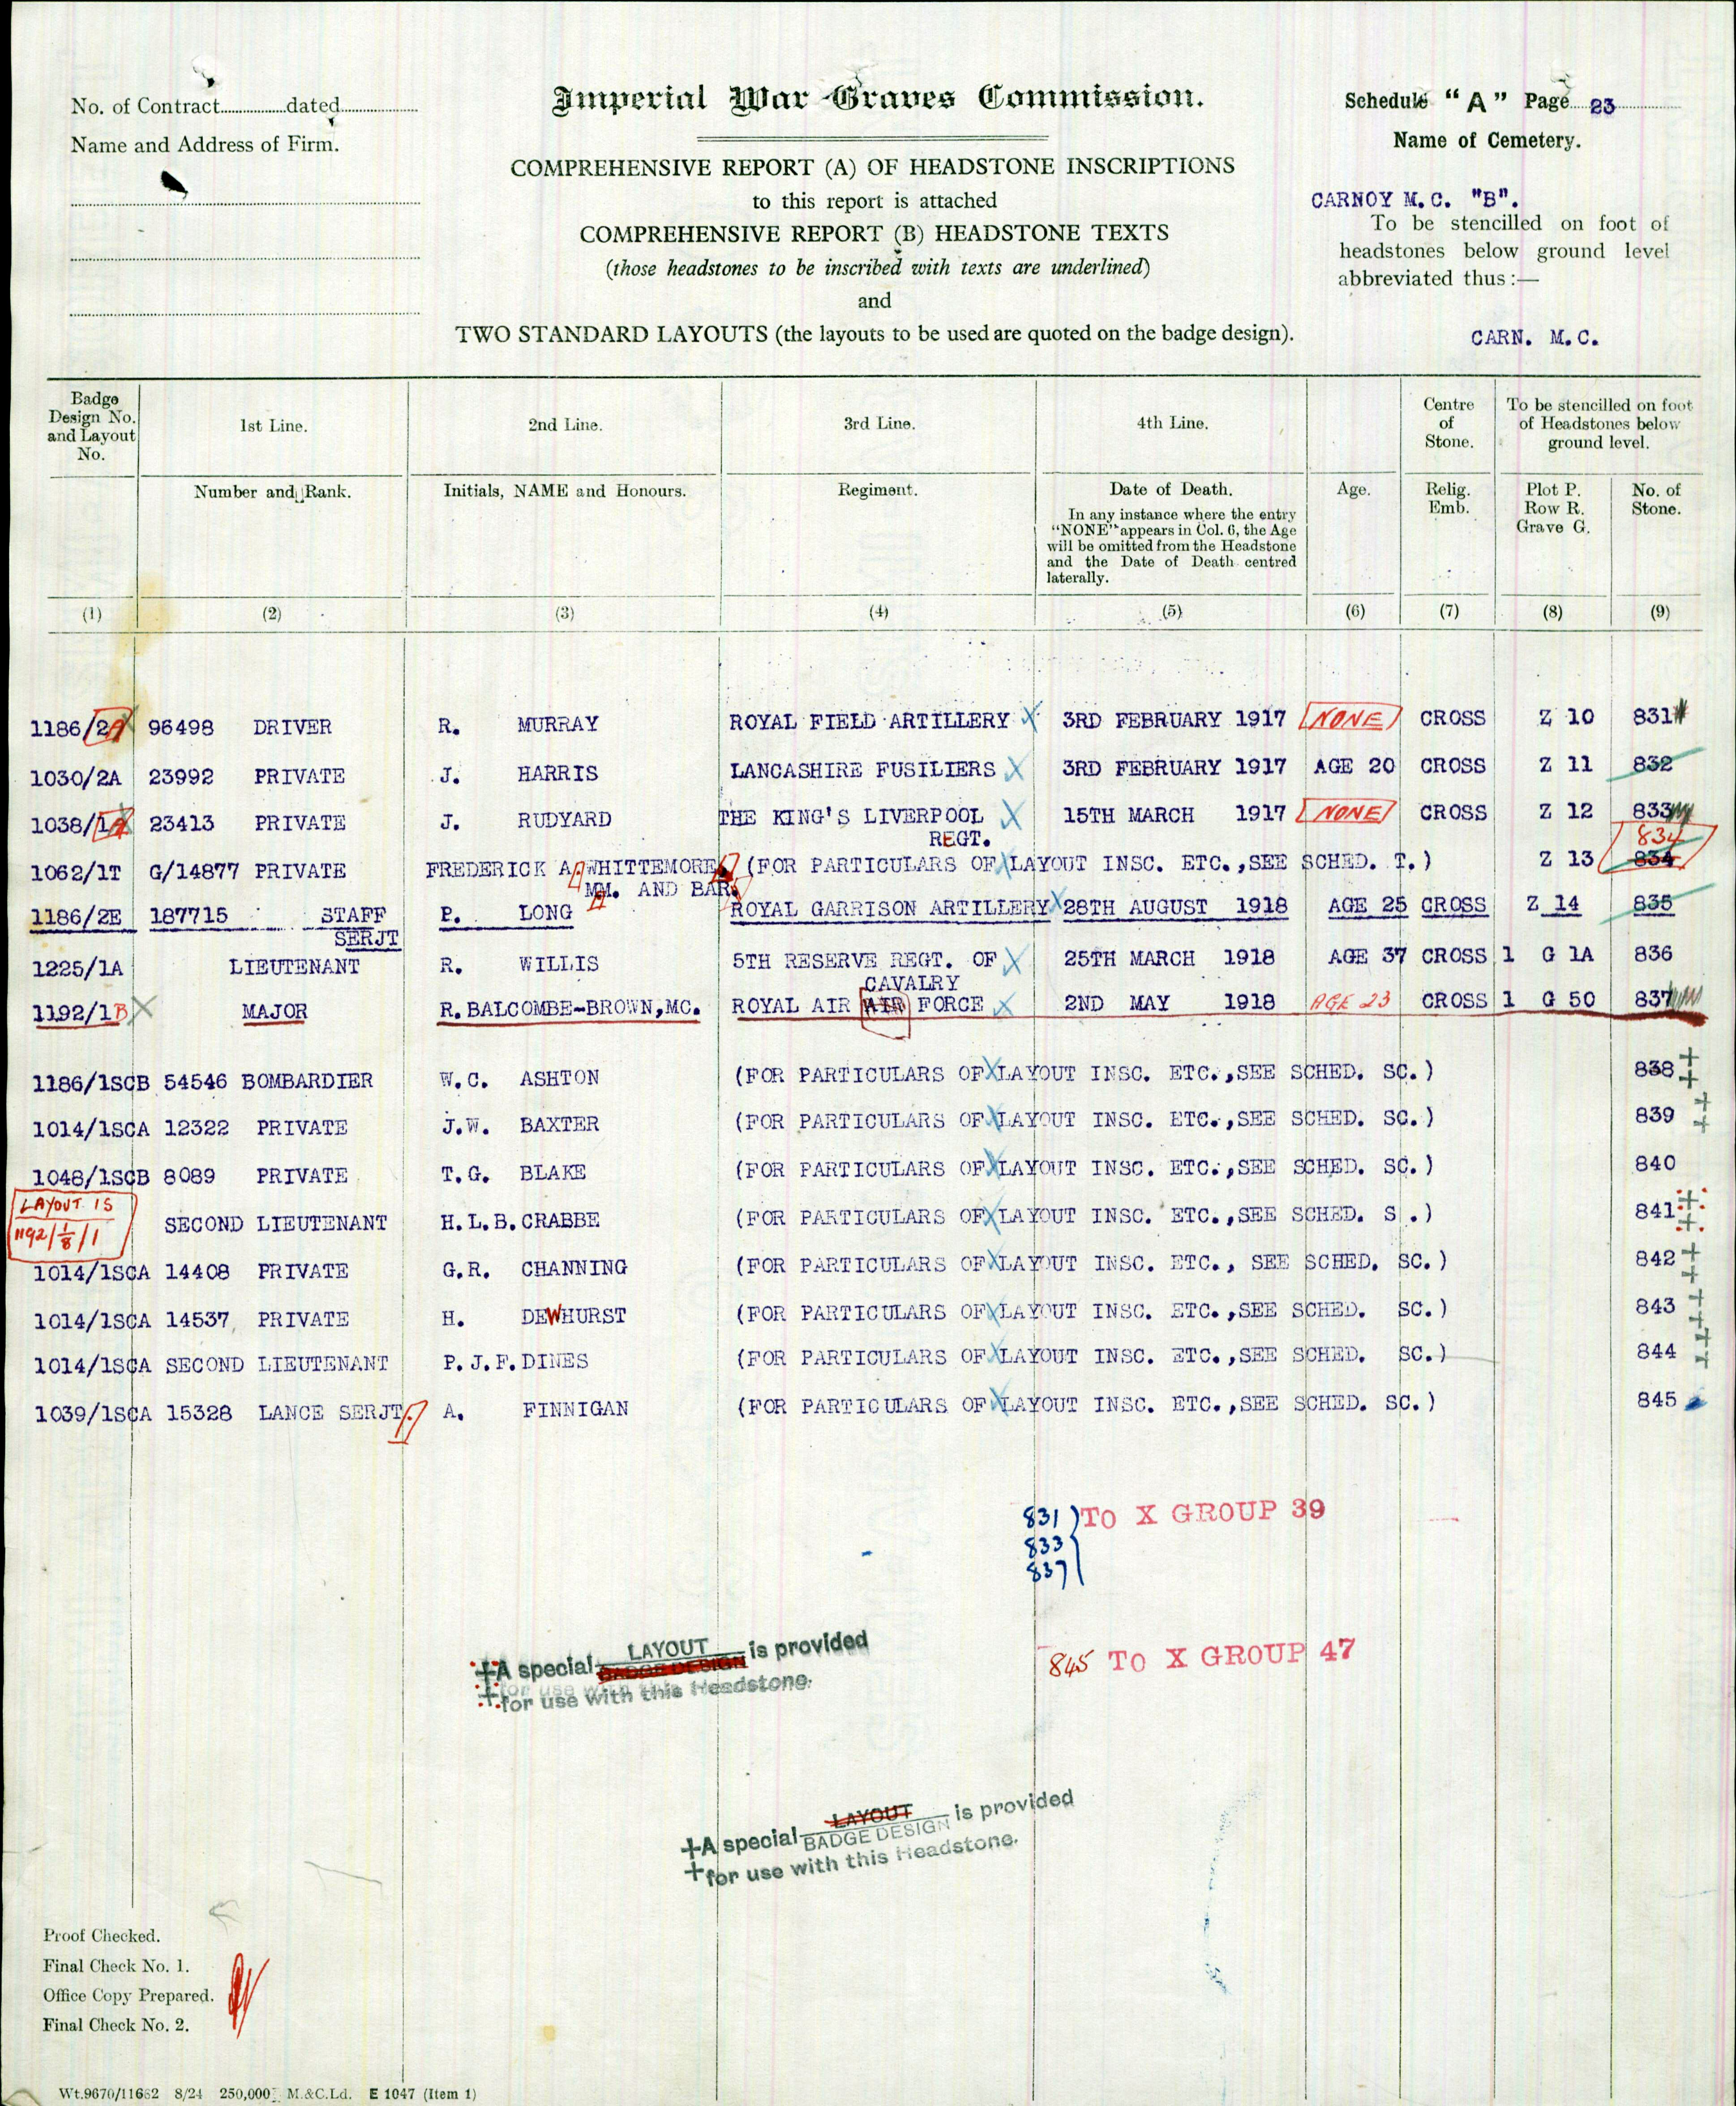 No. of Contract...............dated..................
Name and Address of Firm.
Imperial War Graves Commission.
COMPREHENSIVE REPORT (A) OF HEADSTONE INSCRIPTIONS
to this report is attached
COMPREHENSIVE REPORT (B) HEADSTONE TEXTS
(those headstones to be inscribed with texts are underlined)
and
TWO STANDARD LAYOUTS (the layouts to be used are quoted on the badge design).
Schedule "A" Page 23
Name of Cemetery.
CARNOY M.C. "B".
To be stencilled on foot of
headstones below ground level
abbreviated thus:—
CARN. M.C.
Badge Design No. and Layout No. 1st Line. 2nd Line. 3rd Line. 4th Line. Centre of Stone. To be stencilled on foot of Headstones below ground level.
Number and Rank. Initials, NAME and Honours. Regiment. Date of Death. Age. Relig. Emb. Plot P. Row R. Grave G. No. of Stone.
In any instance where the entry
"NONE" appears in Col. 6, the Age
will be omitted from the Headstone
and the Date of Death centred
laterally.
(1) (2) (3) (4) (5) (6) (7) (8) (9)
1186/2A 96498 DRIVER R. MURRAY ROYAL FIELD ARTILLERY X 3RD FEBRUARY 1917 NONE CROSS Z 10 831
1030/2A 23992 PRIVATE J. HARRIS LANCASHIRE FUSILIERS X 3RD FEBRUARY 1917 AGE 20 CROSS Z 11 832
1038/1A 23413 PRIVATE J. RUDYARD THE KING'S LIVERPOOL X 15TH MARCH 1917 NONE CROSS Z 12 833
REGT.
834
1062/1T G/14877 PRIVATE FREDERICK A. WHITTEMORE (FOR PARTICULARS OF X LAYOUT INSC. ETC.,SEE SCHED. T.) Z 13 834
MM. AND BAR.
1186/2E 187715 STAFF P. LONG ROYAL GARRISON ARTILLERY X 28TH AUGUST 1918 AGE 25 CROSS Z 14 835
SERJT
1225/1A LIEUTENANT R. WILLIS 5TH RESERVE REGT. OF X 25TH MARCH 1918 AGE 37 CROSS 1 G 1A 836
CAVALRY
1192/1B X MAJOR R.BALCOMBE-BROWN,MC. ROYAL AIR AIR FORCE X 2ND MAY 1918 AGE 23 CROSS 1 G 50 837
1186/1SCB 54546 BOMBARDIER W.C. ASHTON (FOR PARTICULARS OF X LAYOUT INSC. ETC.,SEE SCHED. SC.) 838 ++
1014/1SCA 12322 PRIVATE J.W. BAXTER (FOR PARTICULARS OF X LAYOUT INSC. ETC.,SEE SCHED. SC.) 839 ++
1048/1SCB 8089 PRIVATE T.G. BLAKE (FOR PARTICULARS OF X LAYOUT INSC. ETC.,SEE SCHED. SC.) 840
LAYOUT IS
1192/1/8/1 SECOND LIEUTENANT H.L.B.CRABBE (FOR PARTICULARS OF X LAYOUT INSC. ETC.,SEE SCHED. S .) 841 ++
1014/1SCA 14408 PRIVATE G.R. CHANNING (FOR PARTICULARS OF X LAYOUT INSC. ETC., SEE SCHED. SC.) 842 ++
1014/1SCA 14537 PRIVATE H. DEWHURST (FOR PARTICULARS OF X LAYOUT INSC. ETC.,SEE SCHED. SC.) 843 ++
1014/1SCA SECOND LIEUTENANT P.J.F.DINES (FOR PARTICULARS OF X LAYOUT INSC. ETC.,SEE SCHED. SC.) 844 ++
1039/1SCA 15328 LANCE SERJT. A. FINNIGAN (FOR PARTICULARS OF X LAYOUT INSC. ETC.,SEE SCHED. SC.) 845
831 ) TO X GROUP 39
833
837
+A special LAYOUT BADGE DESIGN is provided
+for use with this Headstone.
845 TO X GROUP 47
+A special LAYOUT BADGE DESIGN is provided
+for use with this Headstone.
Proof Checked.
Final Check No. 1.
Office Copy Prepared.
Final Check No. 2.
Wt.9670/11662 8/24 250,000 M.&C.Ld. E 1047 (Item 1)